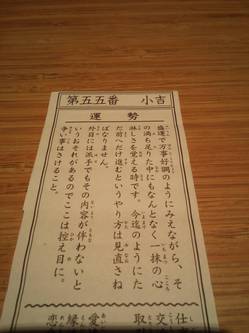 第五五番 小吉
運勢
盛運で万事好調のようにみえながら、そ
の満ち足りた中にもなんとなく一抹の心
淋しさを覚える時です。今迄のようにた
だ前へだけ進むというやり方は見直さね
ばなりません。
外目には派手でもその内容が伴わないと
いうおそれがあるのでここは控え目に。
争い事はさけること。
仕
交
取
愛
縁
恋